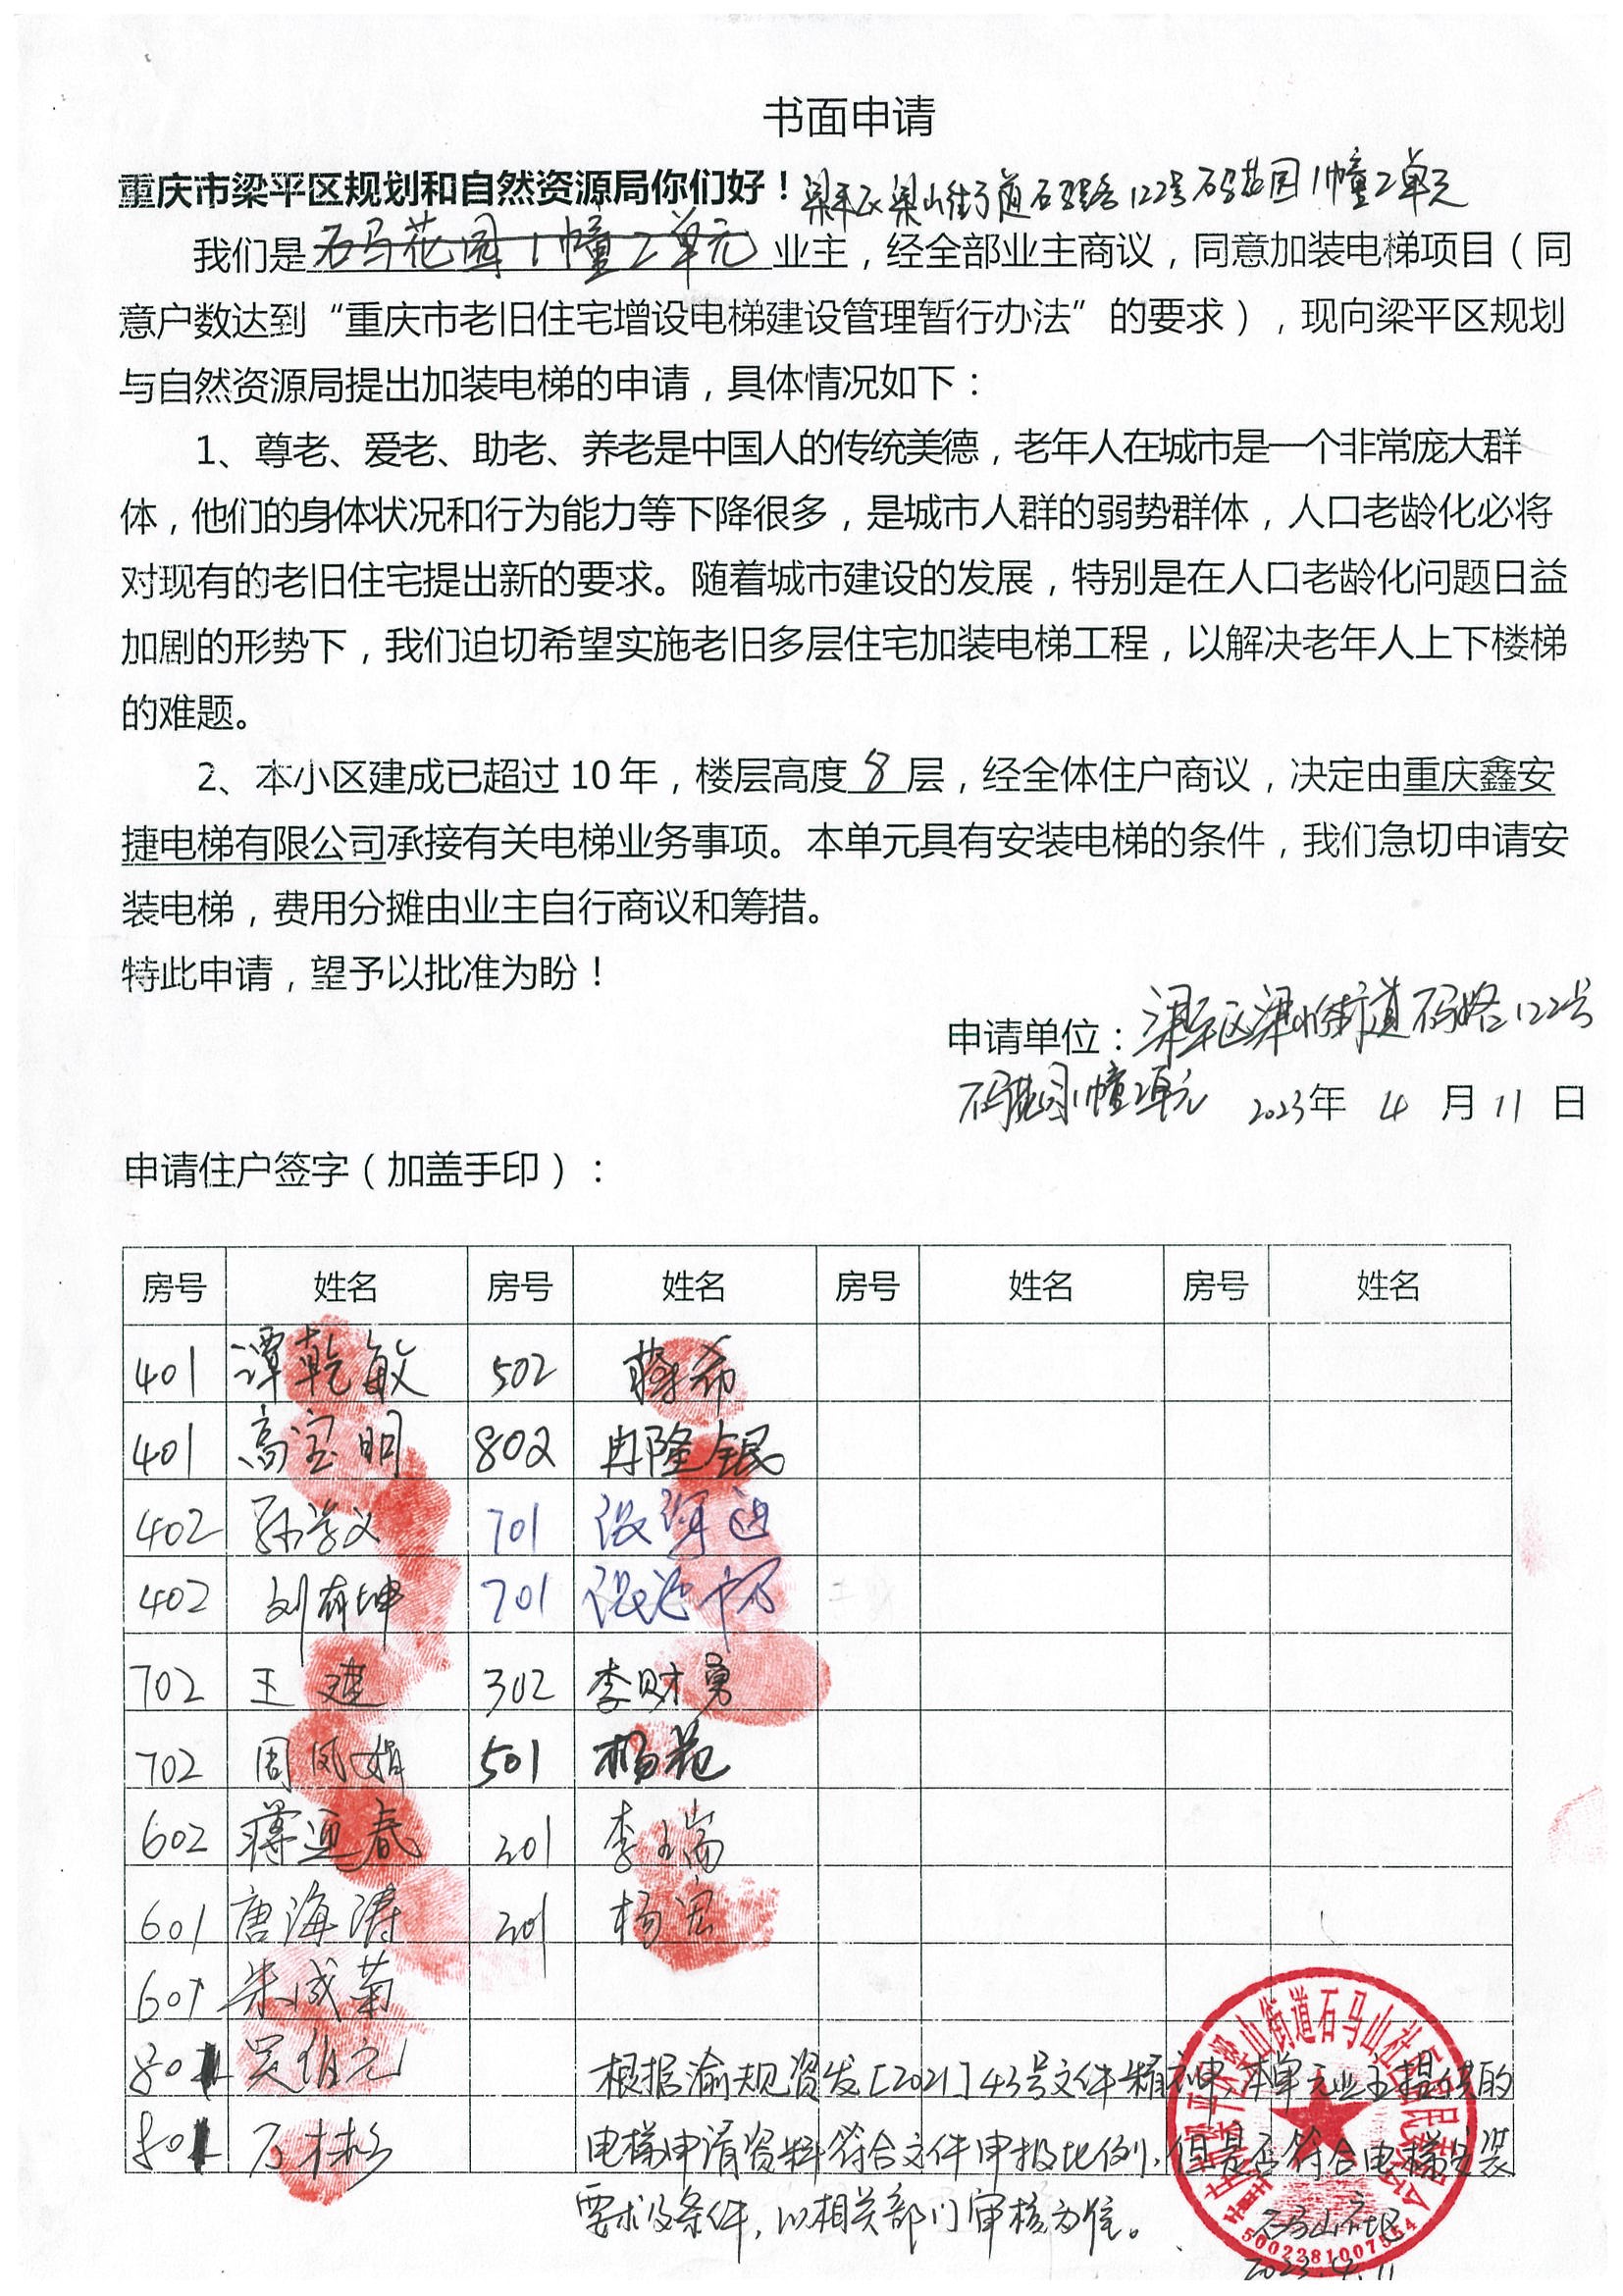 书面申请
重庆市梁平区规划和自然资源局你们好！梁平区梁山街道石马路122号石马花园1幢2单元
我们是石马花园1幢2单元业主，经全部业主商议，同意加装电梯项目（同
意户数达到“重庆市老旧住宅增设电梯建设管理暂行办法”的要求），现向梁平区规划
与自然资源局提出加装电梯的申请，具体情况如下：
1、尊老、爱老、助老、养老是中国人的传统美德，老年人在城市是一个非常庞大群
体，他们的身体状况和行为能力等下降很多，是城市人群的弱势群体，人口老龄化必将
对现有的老旧住宅提出新的要求。随着城市建设的发展，特别是在人口老龄化问题日益
加剧的形势下，我们迫切希望实施老旧多层住宅加装电梯工程，以解决老年人上下楼梯
的难题。
2、本小区建成已超过10年，楼层高度8层，经全体住户商议，决定由重庆鑫安
捷电梯有限公司承接有关电梯业务事项。本单元具有安装电梯的条件，我们急切申请安
装电梯，费用分摊由业主自行商议和筹措。
特此申请，望予以批准为盼！
申请单位：梁平区梁山街道石马路122号
石马花园1幢2单元 2023年4月11日
申请住户签字（加盖手印）：
房号 姓名 房号 姓名 房号 姓名 房号 姓名
401 谭乾敏 502 蒋希
401 高宝明 802 冉隆银
402 孙学义 701
402 刘有坤 701
702 王建 302 李财勇
702 周凤娟 501 杨苑
602 蒋迎春 201 李瑞
601 唐海涛 201 杨宏
601 朱成菊
801 吴维元
801 石彬彬
根据渝规资发[2021]43号文件精神，本单元业主提供的
电梯申请资料符合文件申报比例，但是否符合电梯安装
要求及条件，以相关部门审核为准。
石马山社区
2023.4.11
梁平区梁山街道石马山社区居民委员会
5002281007554